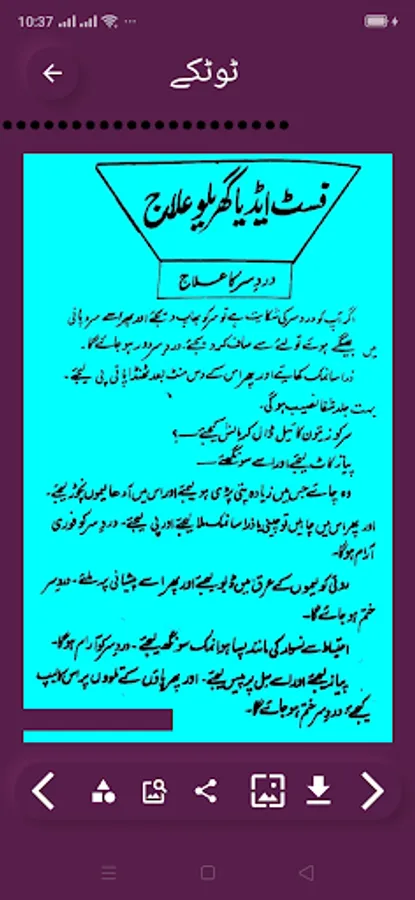 10:37
ٹوٹکے
فسٹ ایڈ یا گھریلو علاج
دردِ سر کا علاج
اگر آپ کو دردِ سر کی شکایت ہے تو سر کو بھاپ دیجئے اور پھر اسے سرد پانی
میں بھیگے ہوئے تولئے سے صاف کر دیجئے۔ دردِ سر دور ہو جائے گا۔
ذرا سا نمک کھایئے اور پھر اس کے دس منٹ بعد ٹھنڈا پانی پی لیجئے۔
بہت جلد شفا نصیب ہو گی۔
سر کو زیتون کا تیل ڈال کر مالش کیجئے۔
پیاز کاٹ لیجئے اور اسے سونگھئے
وہ چائے جس میں زیادہ پتی پڑی ہو لیجئے اور اس میں آدھا لیموں نچوڑ لیجئے۔
اور پھر اس میں چاہیں تو چینی یا ذرا سا نمک ملا لیجئے اور پی لیجئے۔ دردِ سر کو فوری
آرام ہو گا۔
روئی کو لیموں کے عرق میں ڈبو لیجئے اور پھر اسے پیشانی پر ملئے۔ دردِ سر
ختم ہو جائے گا۔
احتیاط سے نسوار کی مانند پسا ہوا نمک سونگھ لیجئے۔ دردِ سر کو آرام ہو گا۔
پیاز لیجئے اور اسے سل پر پیس لیجئے۔ اور پھر پاؤں کے تلووں پر اس کا لیپ
کیجئے دردِ سر ختم ہو جائے گا۔